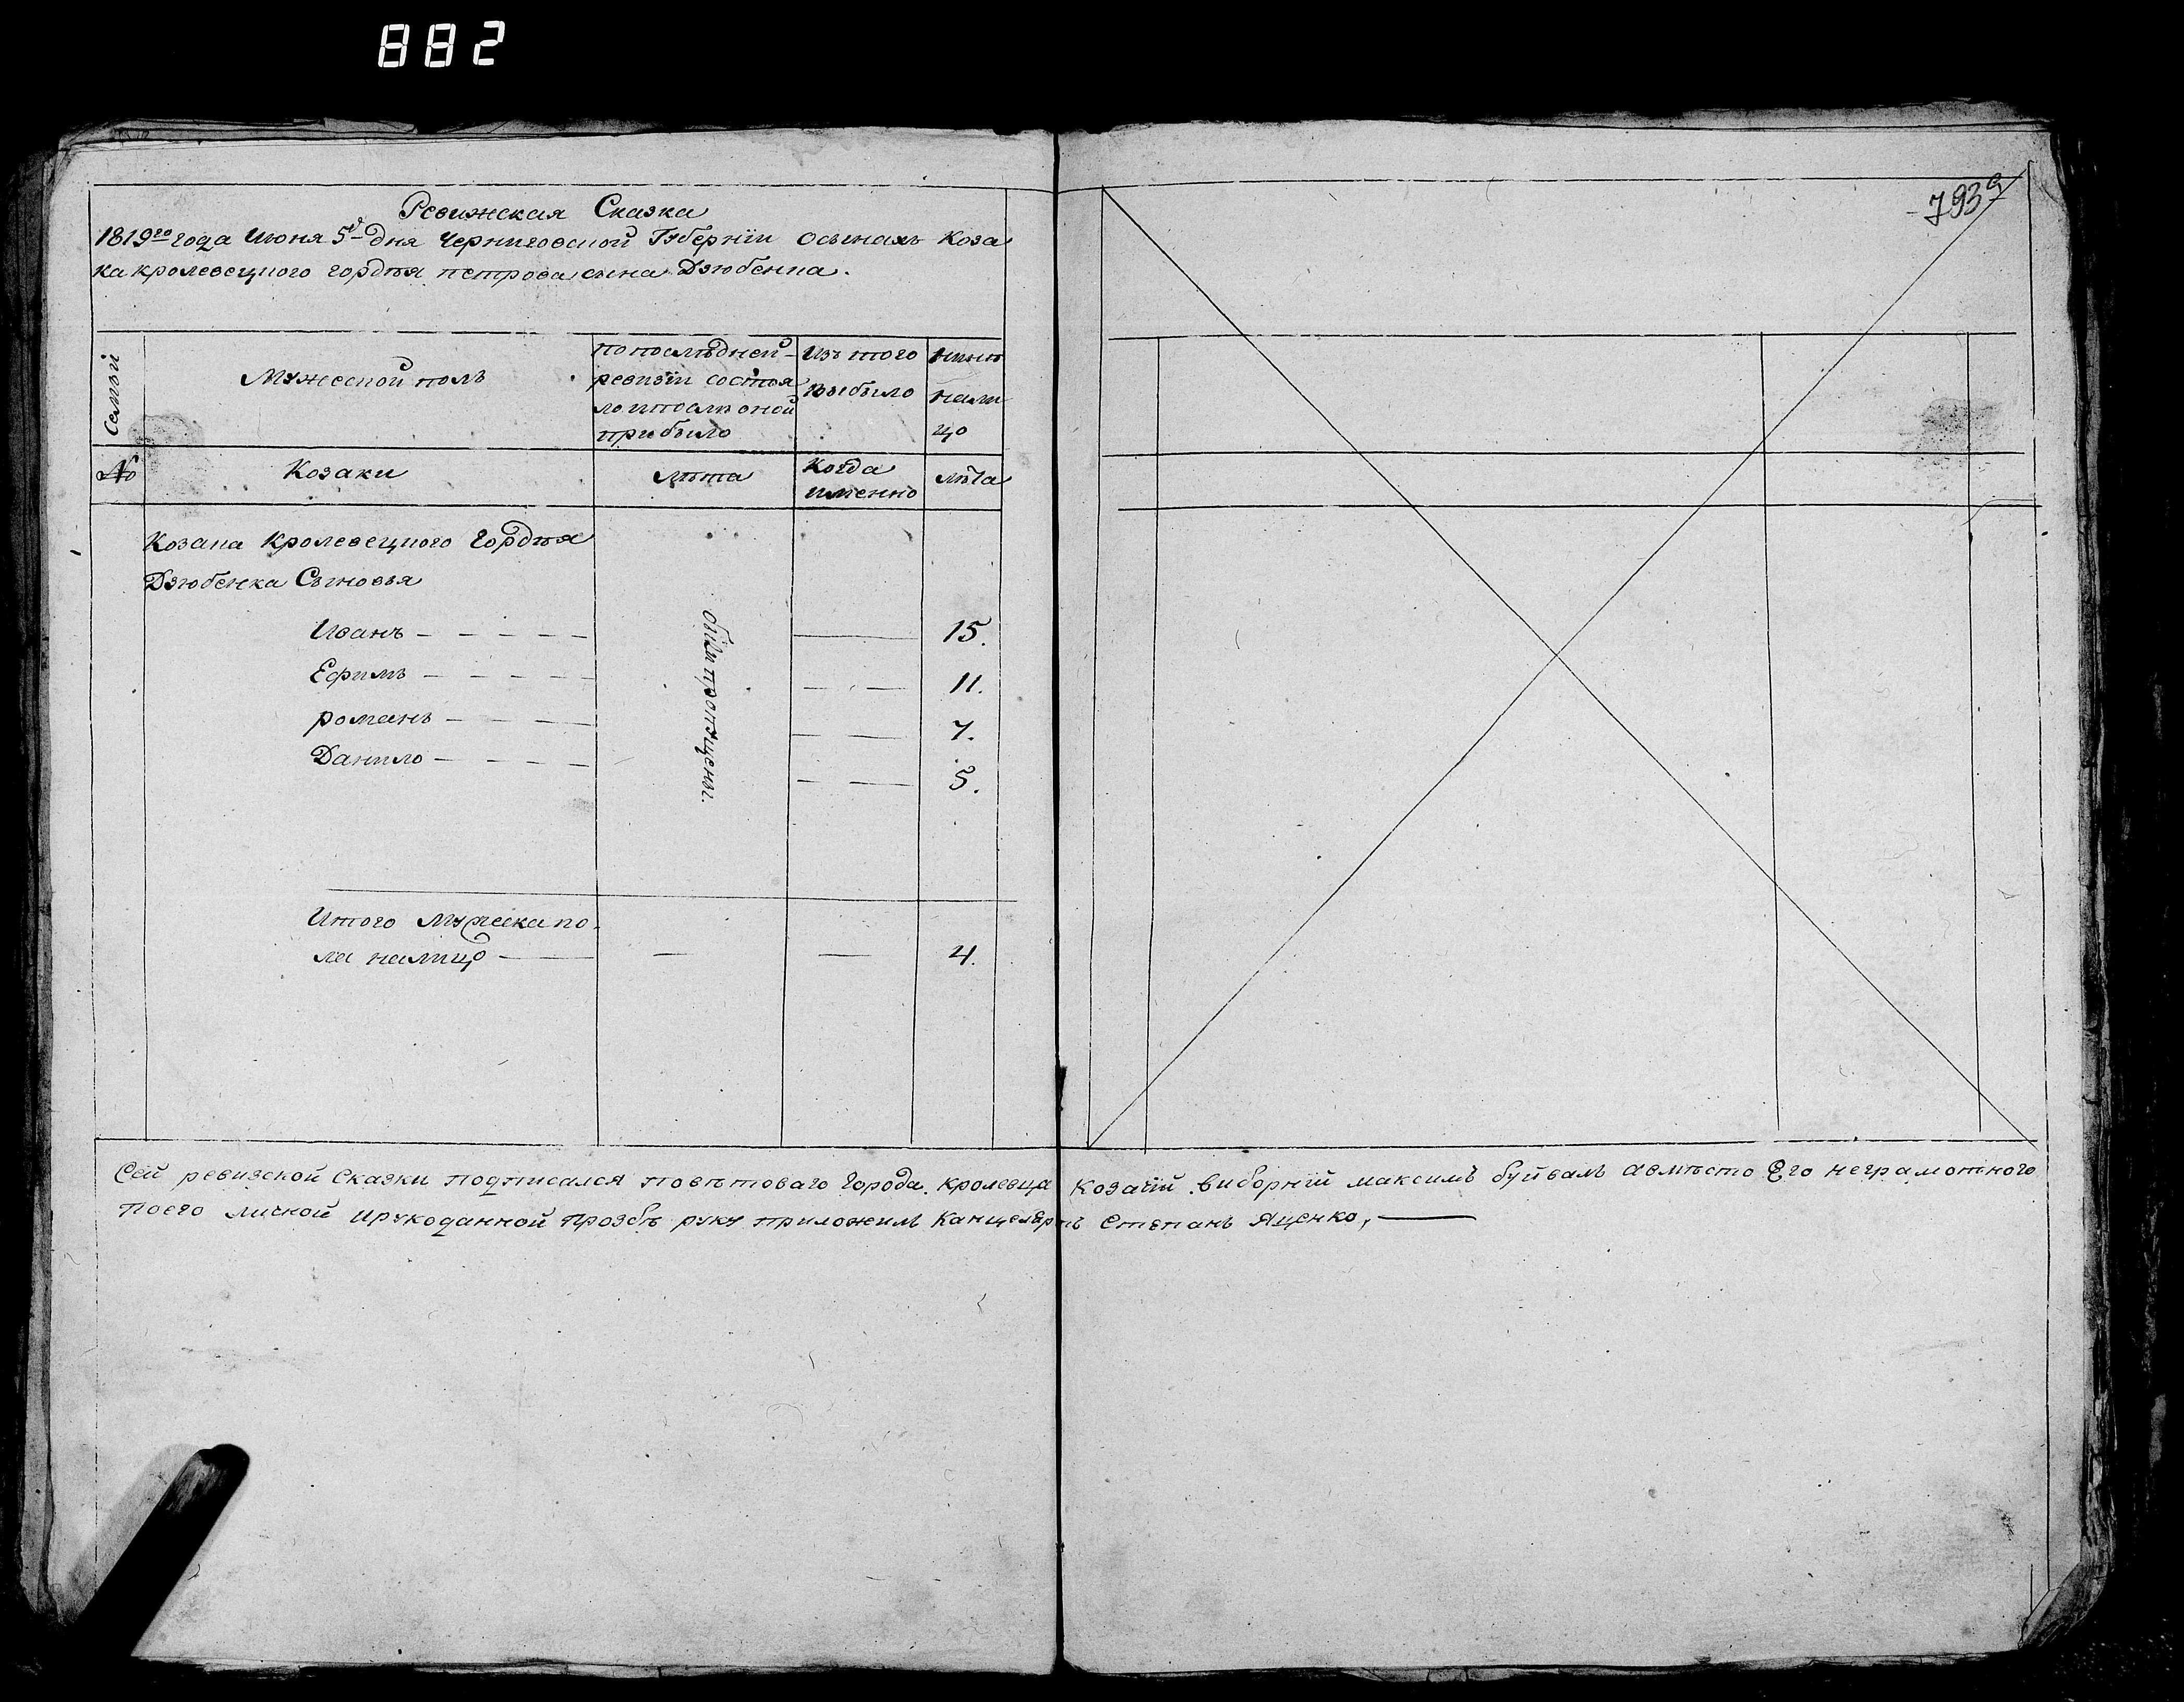 882
793
Ревижская Сказка
1819го года Июня 5 дня Черниговской Губерніи осынахъ Коза
ка кролевецкого гордѣя петрова сына Дзюбенка.
Семьи
Мужеской полъ
попослѣдней
ревизіи состоя
ло ипослѣ оной
прибыло
Изъ того
выбыло
Нынѣ
нали
цо
№
Козаки
лѣта
Когда
именно
лѣта
Козака кролевецкого Гордѣя
Дзюбенка Сыновья
Иванъ - - - - - — 15.
Ефимъ - - - - - — 11.
романъ - - - - — 7.
Данило - - - - — 5.
были пропущены.
Итого мужеска по
ла налицо — — — 4.
Сей ревизской Сказки подписался повѣтоваго Города Кролевца Козачій виборній максимъ буйвалъ авмѣсто Его неграмотного
поего личной ирукоданной прозбѣ руку приложилъ Канцеляристъ Степанъ Яценко,